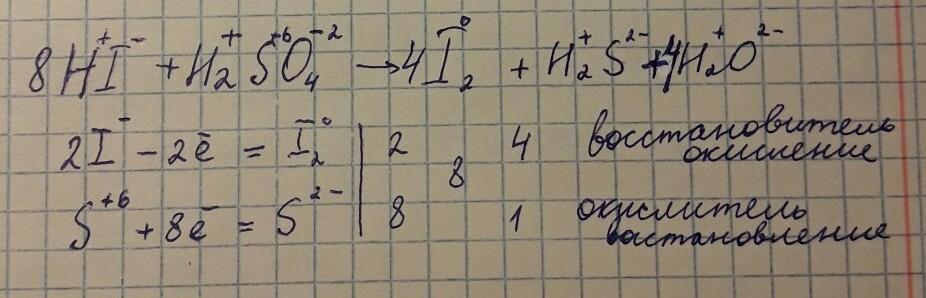 8H⁺I⁻ + H₂⁺S⁺⁶O₄⁻² → 4I₂⁰ + H₂⁺S²⁻ + 4H₂⁺O²⁻
2I⁻ - 2ē = I₂⁰ | 2 4 восстановитель
окисление
8
S⁺⁶ + 8ē = S²⁻ | 8 1 окислитель
востановление